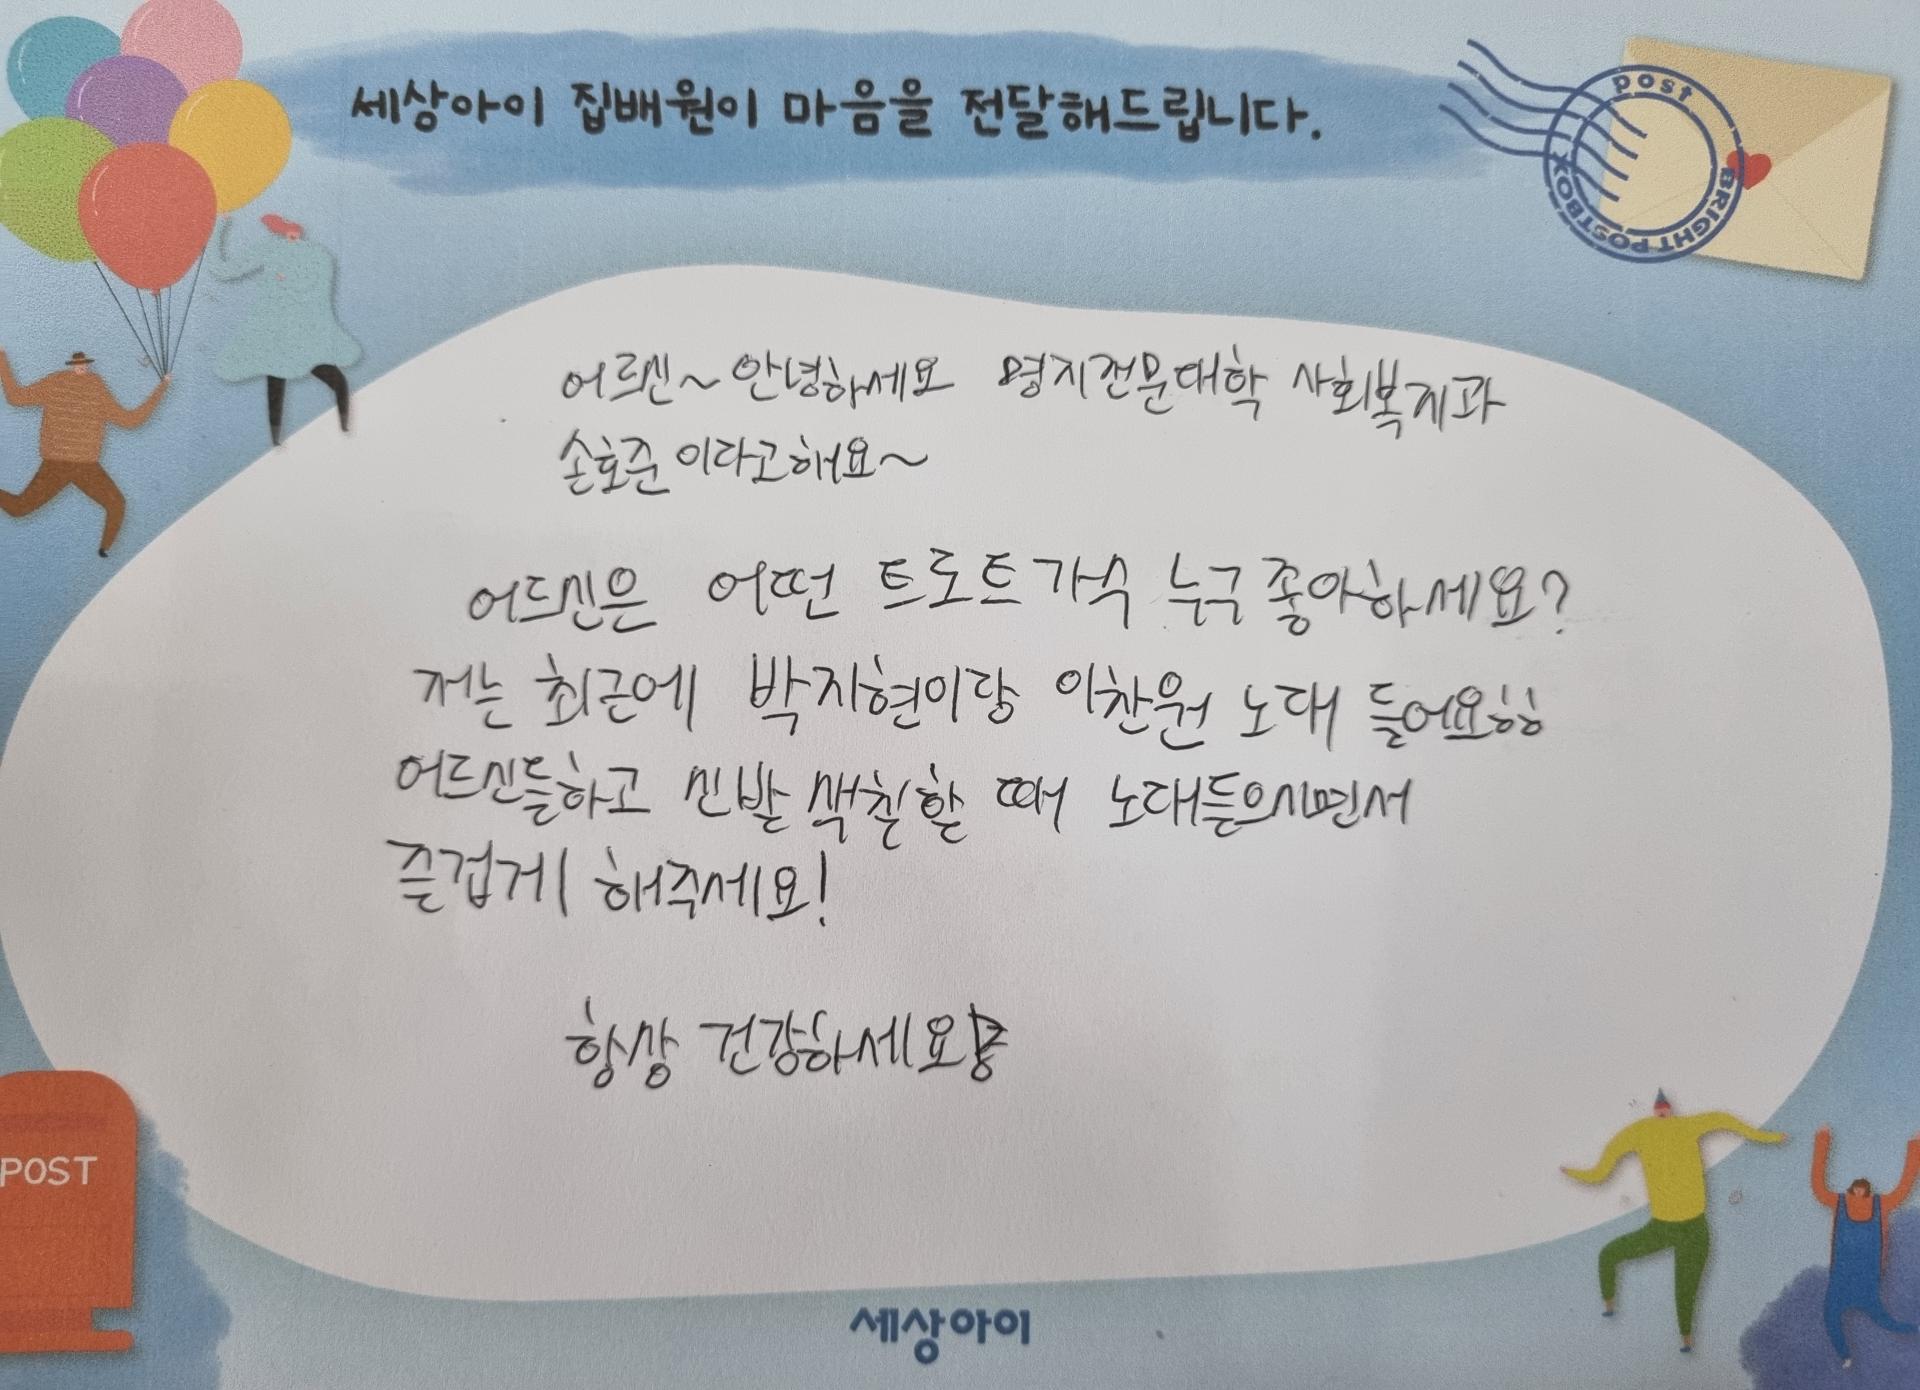 세상아이 집배원이 마음을 전달해드립니다.
post
BRIGHT POSTBOX
어르신~ 안녕하세요 명지전문대학 사회복지과
손호준 이라고해요~
어르신은 어떤 트로트가수 누구 좋아하세요?
저는 최근에 박지현이랑 이찬원 노래 들어요ㅎㅎ
어르신들하고 신발 색칠할 때 노래들으시면서
즐겁게 해주세요!
항상 건강하세요
POST
세상아이